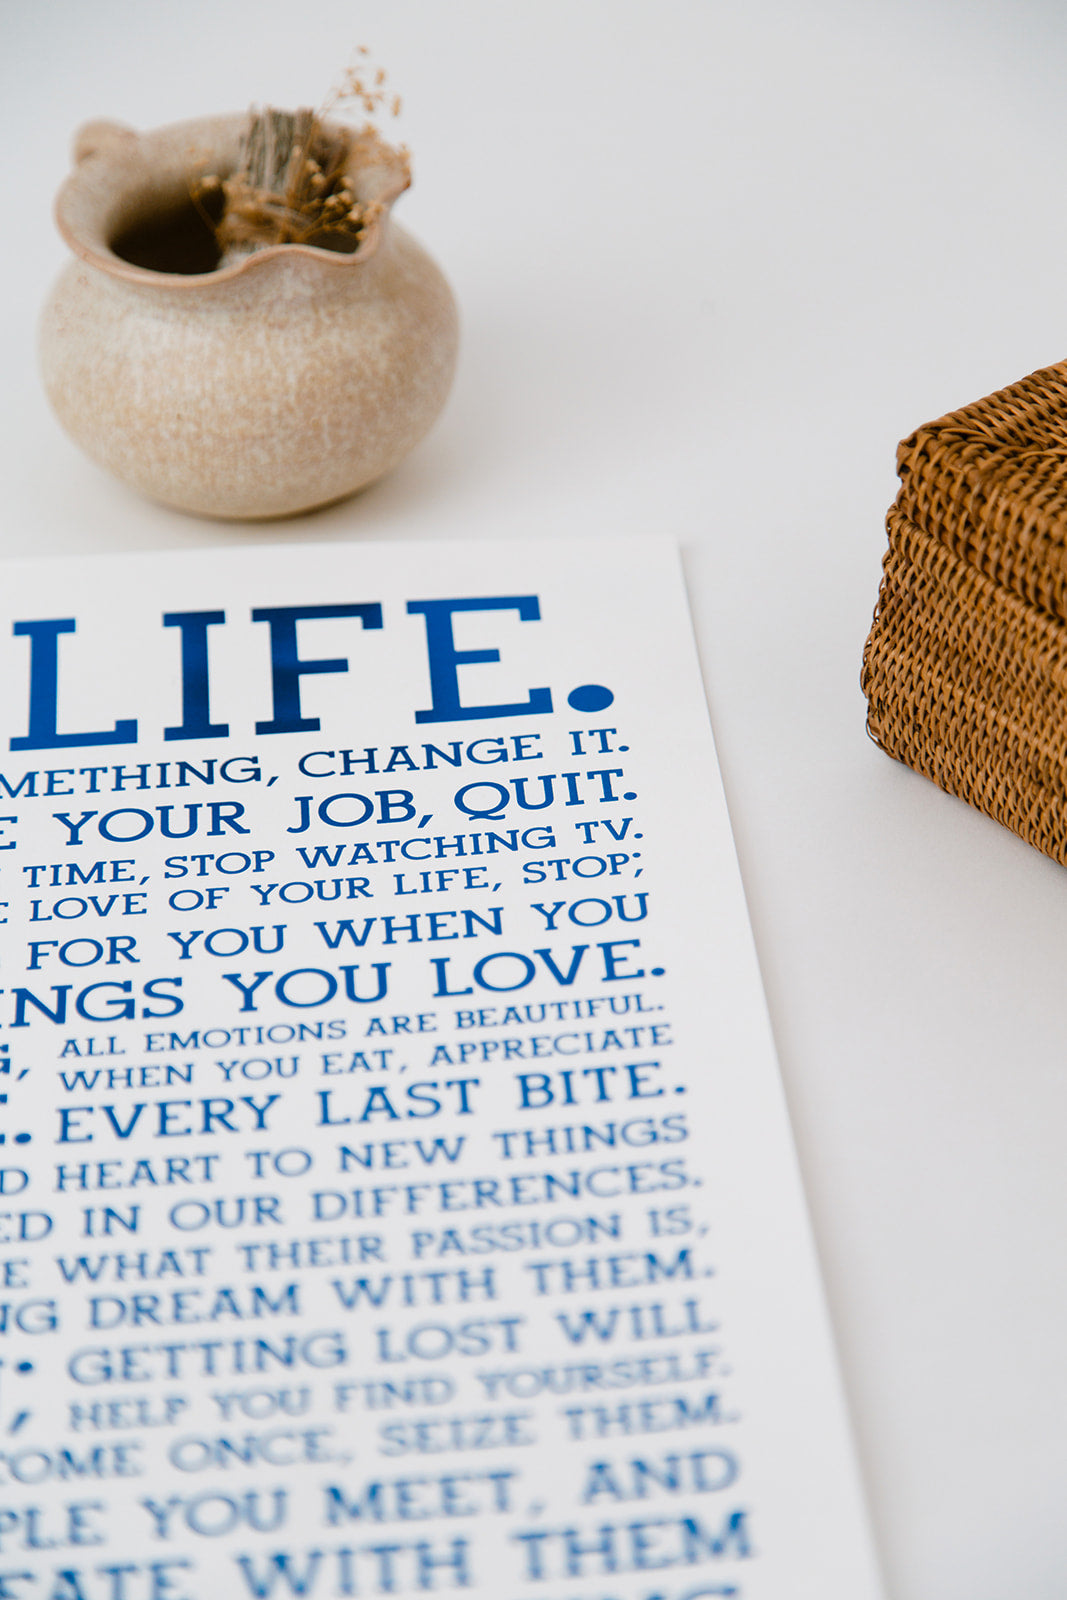 LIFE.
METHING, CHANGE IT.
E YOUR JOB, QUIT.
TIME, STOP WATCHING TV.
E LOVE OF YOUR LIFE, STOP;
FOR YOU WHEN YOU
INGS YOU LOVE.
ALL EMOTIONS ARE BEAUTIFUL.
WHEN YOU EAT, APPRECIATE
EVERY LAST BITE.
D HEART TO NEW THINGS
ED IN OUR DIFFERENCES.
E WHAT THEIR PASSION IS,
NG DREAM WITH THEM.
GETTING LOST WILL
HELP YOU FIND YOURSELF.
COME ONCE, SEIZE THEM.
PLE YOU MEET, AND
EATE WITH THEM